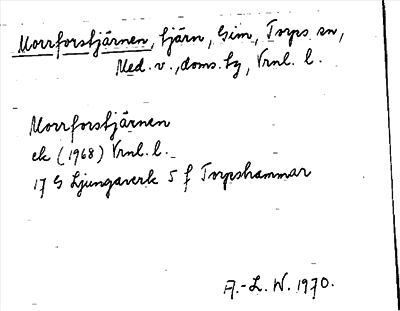 Morrforstjärnen, tjärn, Gim, Torps sn,
Med. v., doms. tg, Vrnl. l.
Morrforstjärnen
ek (1968) Vrnl. l.
17 G Ljungaverk 5 f Torpshammar
A.-L. W. 1970.